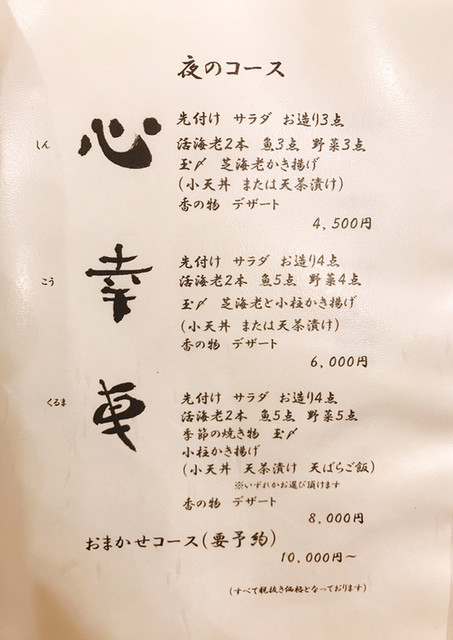 夜のコース
しん
心
先付け サラダ お造り3点
活海老2本 魚3点 野菜3点
玉〆 芝海老かき揚げ
(小天丼 または天茶漬け)
香の物 デザート
4,500円
こう
幸
先付け サラダ お造り4点
活海老2本 魚5点 野菜4点
玉〆 芝海老と小柱かき揚げ
(小天丼 または天茶漬け)
香の物 デザート
6,000円
くるま
車
先付け サラダ お造り4点
活海老2本 魚5点 野菜5点
季節の焼き物 玉〆
小柱かき揚げ
(小天丼 天茶漬け 天ばらご飯)
※いずれかお選び頂けます
香の物 デザート
8,000円
おまかせコース(要予約)
10,000円~
(すべて税抜き価格となっております)